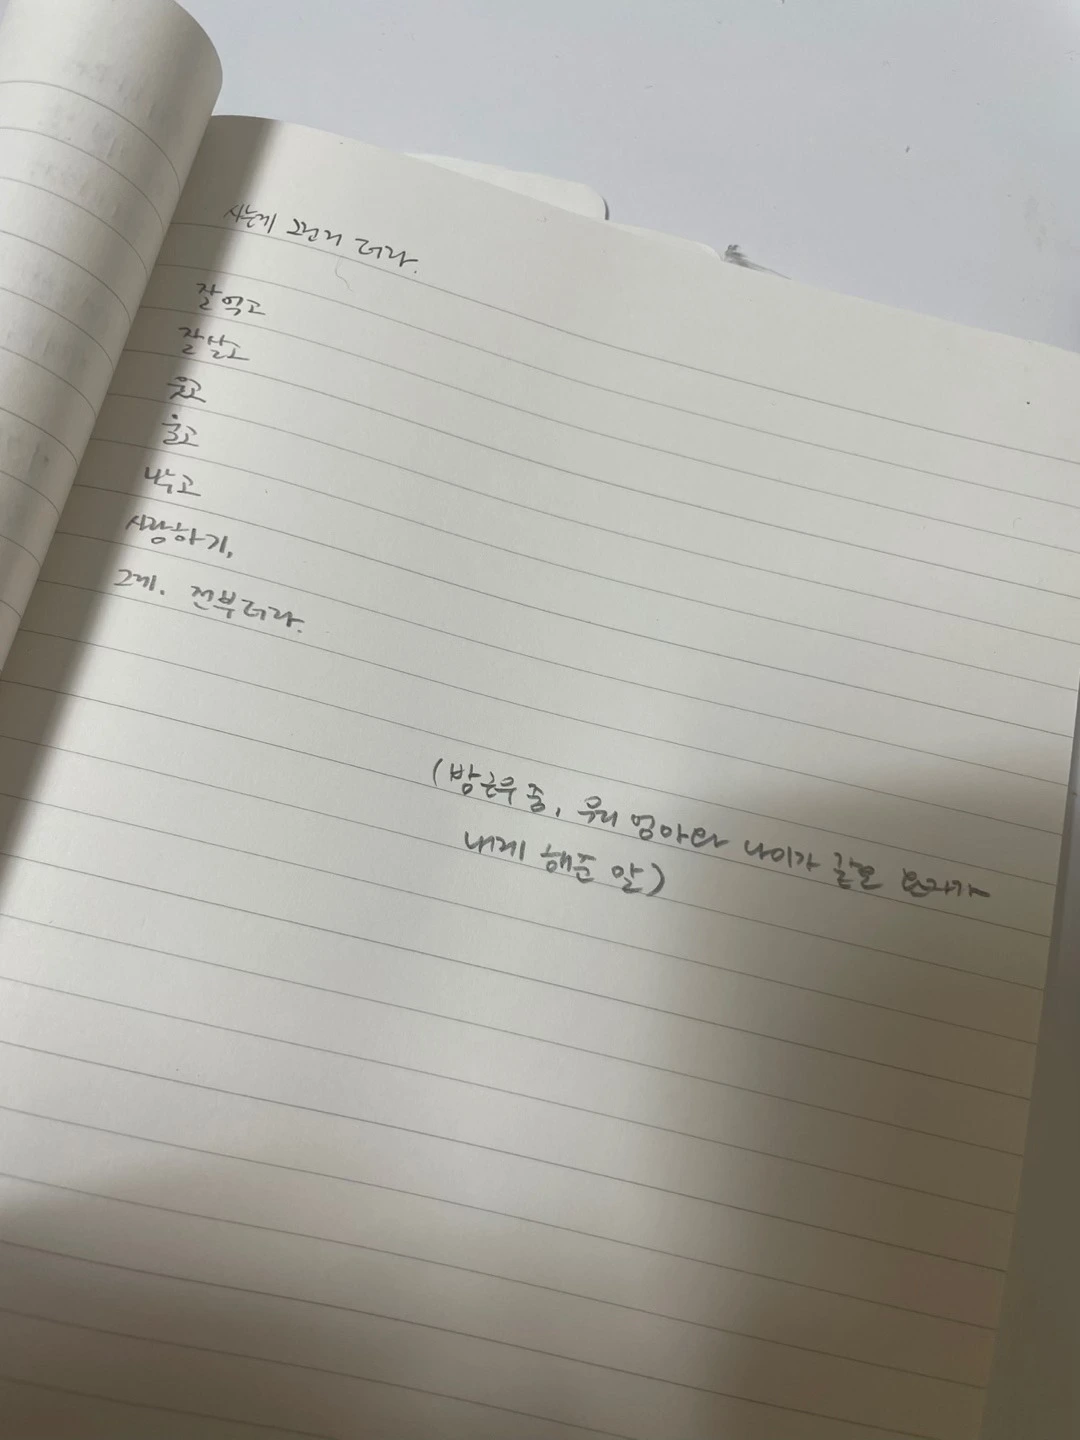 사는게 그런거 더라.
잘먹고
잘살고
웃고
울고
낳고
사랑하기,
그게. 전부더라.
(밤근무 중, 우리 엄마와 나이가 같은 환자가
내게 해준 말)